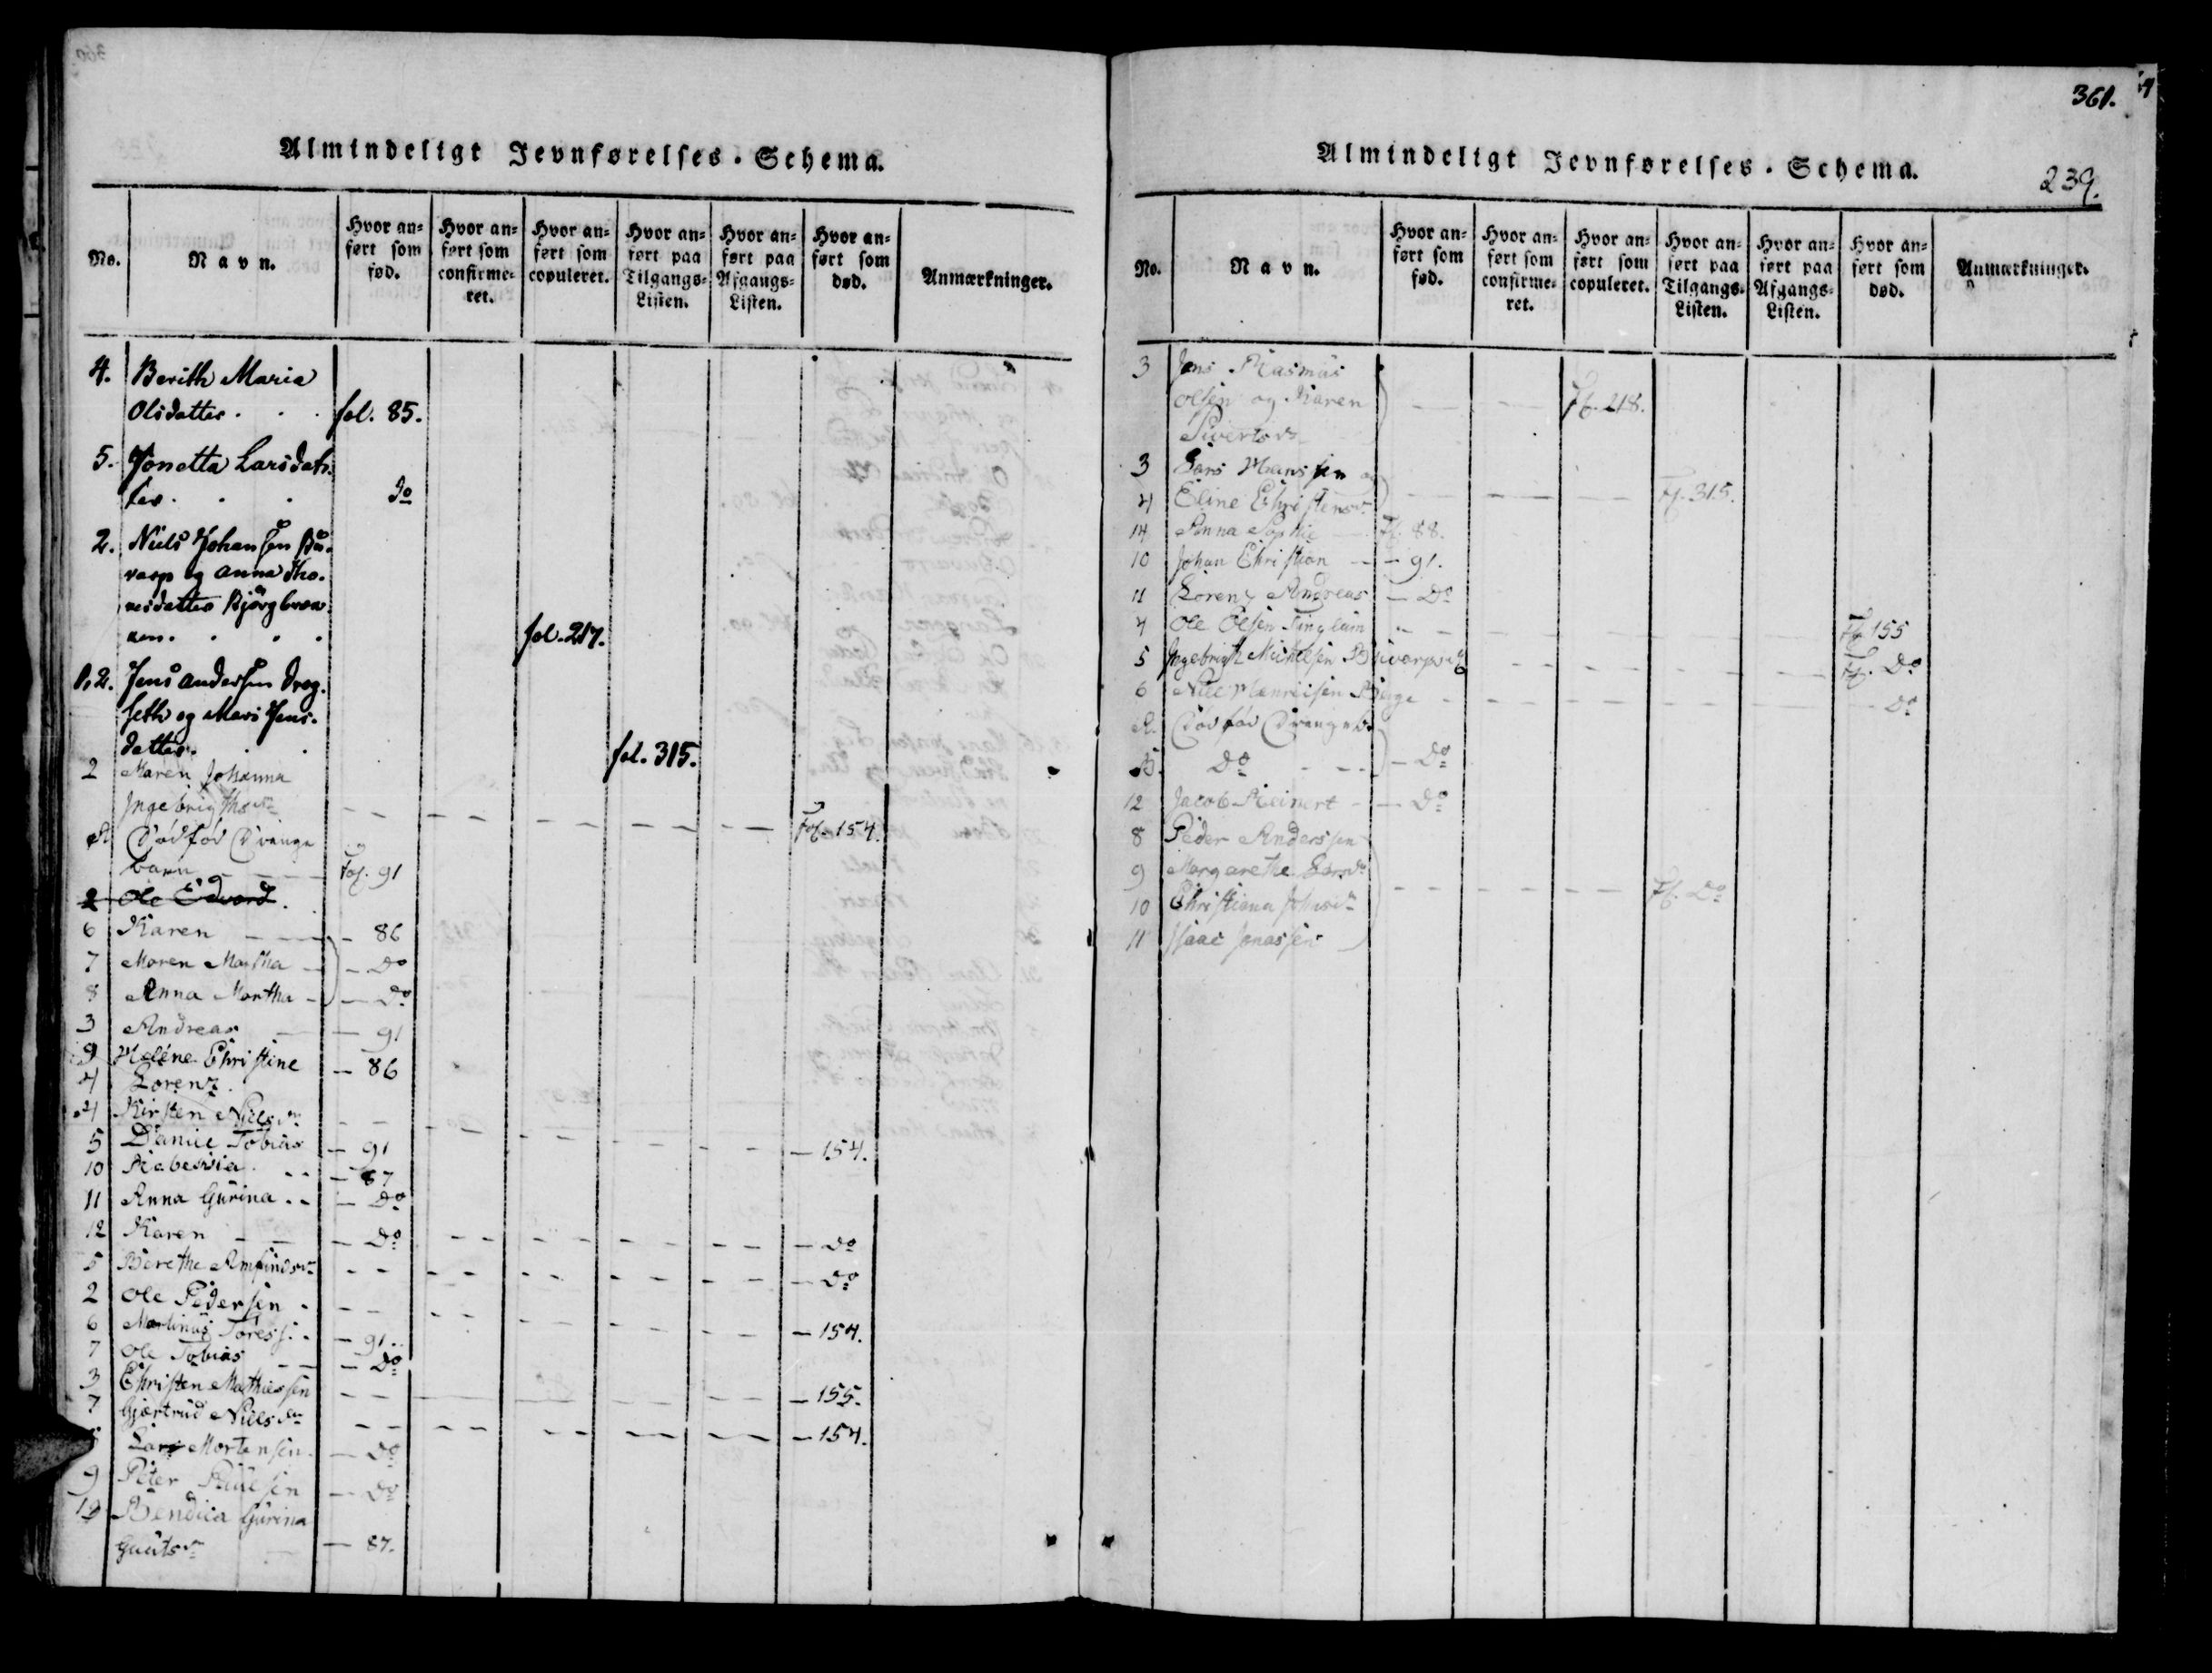 Almindeligt Jevnførelses-Schema.
No.
Navn.
Hvor anført som fød.
Hvor anført som confirmeret.
Hvor anført som copuleret.
Hvor anført paa Tilgangs-Listen.
Hvor anført paa Afgangs-Listen.
Hvor anført som død.
Anmærkninger.
4. Berith Maria
Olsdatter. . . fol. 85.
5. Jonetta Larsdat-
ter. . . do
2. Niels Johansen
og Anna Tho-
mesdatter
. . . fol. 217.
1,2. Jens Andersen Drog-
seth og Mari Jens-
datter. . . fol. 315.
2 Maren Johanna
Ingebrigthsdr - - - - - - Fol. 154.
A Dødfød Drenge
barn - - - Fol. 91
2 Ole Edvard.
6 Karen - - - 86
7 Maren Martha - - Do
8 Anna Martha - - Do
3 Andreas - - 91
9 Heléne Christine - 86
4 Lorenz.
4 Kirsten Nielsdr - - - - - - 154.
5 Daniel Tobias - 91
10 - - - 87
11 Anna Gurina - - - Do
12 Karen - - - Do - - - - - Do
5 Berethe - - - - - - Do
2 Ole Pedersen - - - - - - 154.
6 Martinus - 91.
7 Ole Tobias - - Do
3 Christen Mathiessen - - - - - - 155.
7 Gjertrud Nielsdr - - - - - - 154.
Lars Mortensen - Do
9 Peter - Do
10 Bendica Gurina
- 87.
361.
Almindeligt Jevnførelses-Schema.
239.
No.
Navn.
Hvor anført som fød.
Hvor anført som confirmeret.
Hvor anført som copuleret.
Hvor anført paa Tilgangs-Listen.
Hvor anført paa Afgangs-Listen.
Hvor anført som død.
Anmærkninger.
3 Jens Rasmus
Olsen og Karen - - - Fol. 218.
Sivertsdr
3 Lars Hanssen og
4 Eline Christensdr - - - Fol. 315.
14 Anna Sophie - Fol. 88.
10 Johan Christian - - 91.
11 Lorenz Andreas - Do
4 Ole Olsen - - - - - - Fol. 155
5 Ingebrigt - - - - - Fol. Do
6 Niels Henrichsen Berge - - - - - - Do
A. Dødfød Drengeb.
B. Do - - - - Do
12 Jacob Reinert - - Do
8 Peder Anderssen
9 Margarethe Larsdr
10 Christiana - - - Fol. Do
11 Isaac Jonassen